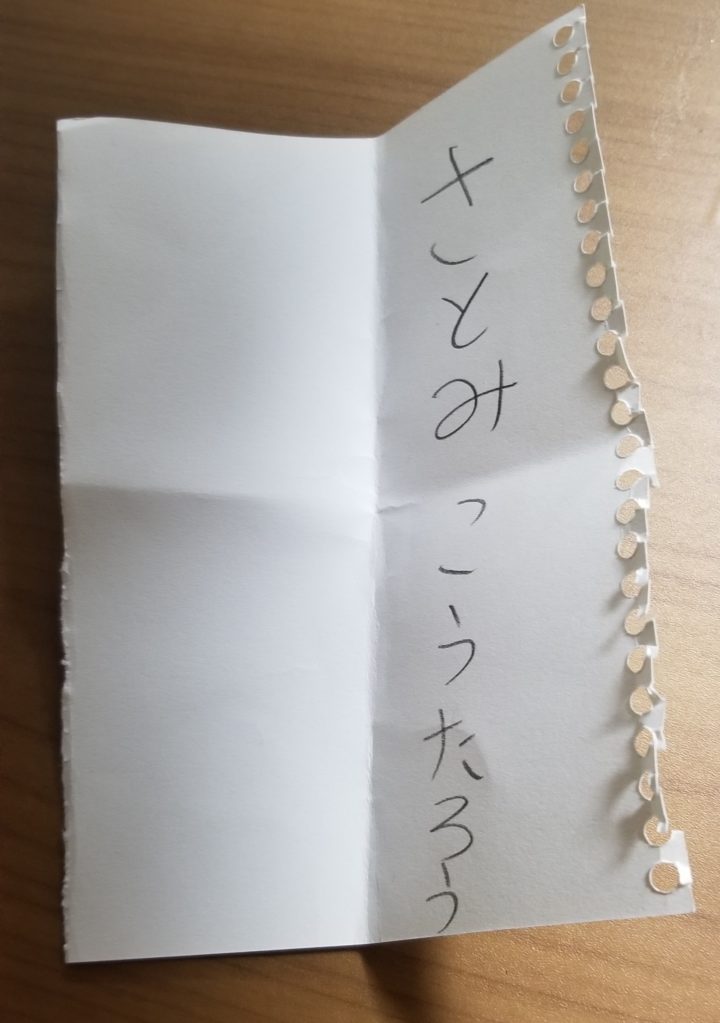 さとみ こうたろう